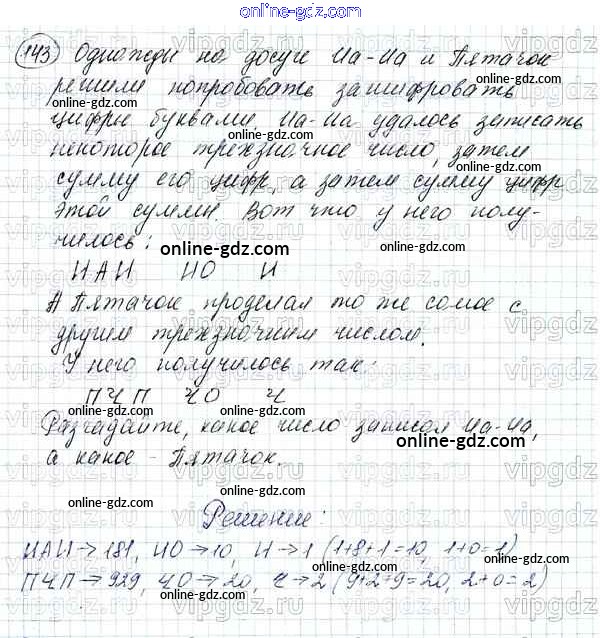 online-gdz.com
143 Однажды на досуге Иа-Иа и Пятачок
решили попробовать зашифровать
online-gdz.com online-gdz.com
цифры буквами. Иа-Иа удалось записать
некоторое трехзначное число, затем
online-gdz.com online-gdz.com
сумму его цифр, а затем сумму цифр
этой суммы. Вот что у него полу-
online-gdz.com
чилось:
online-gdz.com
ИАИ ИО И
online-gdz.com
А Пятачок проделал то же самое с
другим трехзначным числом.
online-gdz.com online-gdz.com
У него получилось так:
online-gdz.com
ПЧП ЧО Ч
online-gdz.com
Разгадайте, какое число записал Иа-Иа,
online-gdz.com
а какое - Пятачок.
online-gdz.com
online-gdz.com
Решение:
online-gdz.com
ИАИ→181, ИО→10, И→1 (1+8+1=10, 1+0=1)
online-gdz.com online-gdz.com
ПЧП→929, ЧО→20, Ч→2 (9+2+9=20, 2+0=2)
online-gdz.com